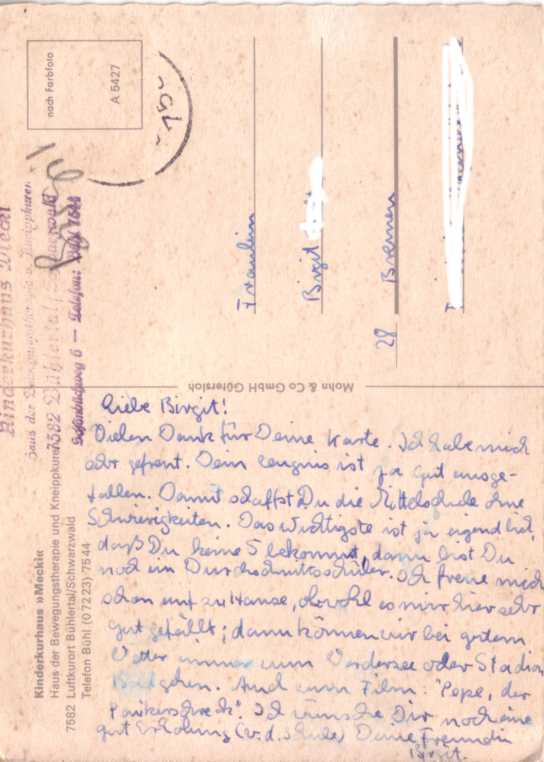 Liebe Birgit!
Vielen Dank für Deine Karte. Ich habe mich
sehr gefreut. Dein Zeugnis ist ja gut ausge-
fallen. Damit schaffst Du die Mittelschule ohne
Schwierigkeiten. Das wichtigste ist ja eigendlich,
daß Du keine 5 bekommst, dann bist Du
noch ein Durchschnittsschüler. Ich freue mich
schon auf zu Hause, obwohl es mir hier sehr
gut gefällt; dann können wir bei gutem
Wetter immer zum oder Stadion
Bad gehen. Auch zum Film: "Pepe, der
Paukerschreck". Ich wünsche Dir noch eine
gute Erholung (v.d. Schule) Deine Freundin
Birgit.
Fräulein
Birgit
28 Bremen
nach Farbfoto
A 5427
750
Mohn & Co GmbH Gütersloh
Kinderkurhaus »Mecki«
Haus der Bewegungstherapie und Kneippkuren
7582 Luftkurort Bühlertal/Schwarzwald
Telefon Bühl (07223) 7544
Kinderkurhaus Mecki
Haus der Bewegungstherapie u. Kneippkuren
7582 Bühlertal/Schwarzwald
6 — Telefon: Bühl 7544